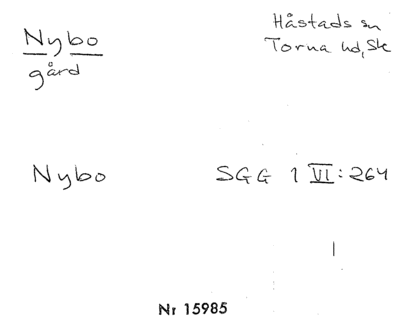 Nybo
gård
Håstads sn
Torna hd, Sk
Nybo SGG 1 VI:264
Nr 15985